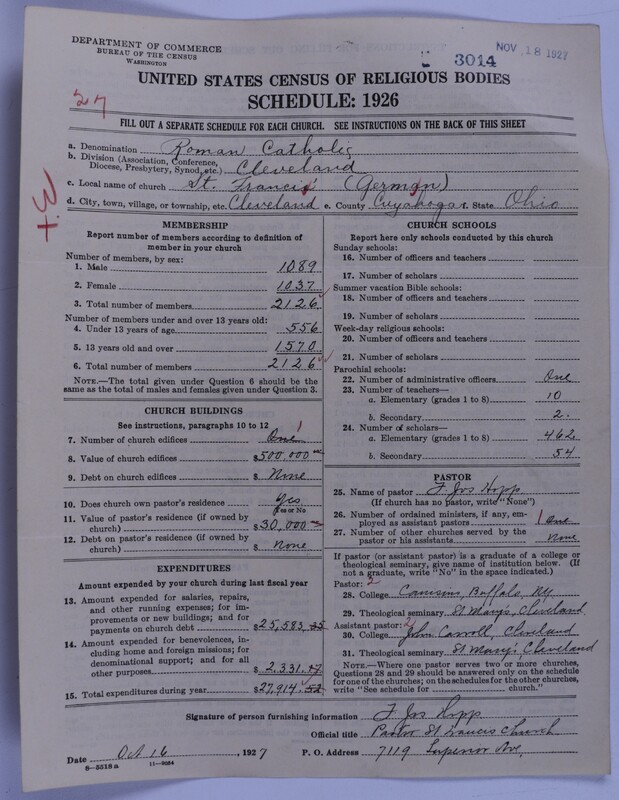 DEPARTMENT OF COMMERCE
BUREAU OF THE CENSUS
WASHINGTON
3014
NOV 18 1927
UNITED STATES CENSUS OF RELIGIOUS BODIES
SCHEDULE: 1926
27
FILL OUT A SEPARATE SCHEDULE FOR EACH CHURCH. SEE INSTRUCTIONS ON THE BACK OF THIS SHEET
a. Denomination Roman Catholic
b. Division (Association, Conference, Diocese, Presbytery, Synod, etc.) Cleveland
c. Local name of church St. Francis (German)
d. City, town, village, or township, etc. Cleveland e. County Cuyahoga f. State Ohio
MEMBERSHIP
Report number of members according to definition of
member in your church
Number of members, by sex:
1. Male 1089
2. Female 1037
3. Total number of members 2126
Number of members under and over 13 years old:
4. Under 13 years of age 556
5. 13 years old and over 1570
6. Total number of members 2126
NOTE.—The total given under Question 6 should be
same as the total of males and females given under Question 3.
CHURCH BUILDINGS
See instructions, paragraphs 10 to 12
7. Number of church edifices One 1
8. Value of church edifices $500,000
9. Debt on church edifices $ None
10. Does church own pastor's residence Yes
Yes or No
11. Value of pastor's residence (if owned by
church) $30,000
12. Debt on pastor's residence (if owned by
church) $ None
EXPENDITURES
Amount expended by your church during last fiscal year
13. Amount expended for salaries, repairs,
and other running expenses; for im-
provements or new buildings; and for
payments on church debt $25,583.35
14. Amount expended for benevolences, in-
cluding home and foreign missions; for
denominational support; and for all
other purposes $2,331.17
15. Total expenditures during year $27,914.52
CHURCH SCHOOLS
Report here only schools conducted by this church
Sunday schools:
16. Number of officers and teachers
17. Number of scholars
Summer vacation Bible schools:
18. Number of officers and teachers
19. Number of scholars
Week-day religious schools:
20. Number of officers and teachers
21. Number of scholars
Parochial schools:
22. Number of administrative officers One
23. Number of teachers—
a. Elementary (grades 1 to 8) 10
b. Secondary 2.
24. Number of scholars—
a. Elementary (grades 1 to 8) 462
b. Secondary 54
PASTOR
25. Name of pastor F Jos Hopp
(If church has no pastor, write "None")
26. Number of ordained ministers, if any, em-
ployed as assistant pastors 1 One
27. Number of other churches served by the
pastor or his assistants None
If pastor (or assistant pastor) is a graduate of a college or
theological seminary, give name of institution below. (If
not a graduate, write "No" in the space indicated.)
Pastor: 2
28. College Canisius, Buffalo, NY
29. Theological seminary St Mary's Cleveland
Assistant pastor: 2
30. College John Carroll, Cleveland
31. Theological seminary St Mary's, Cleveland
NOTE.—Where one pastor serves two or more churches,
Questions 28 and 29 should be answered only on the schedule
for one of the churches; on the schedules for the other churches,
write "See schedule for church."
Signature of person furnishing information F Jos Hopp
Official title Pastor St Francis Church
Date Oct 16, 1927 P. O. Address 7119 Superior Ave,
8—5518a 11—9084